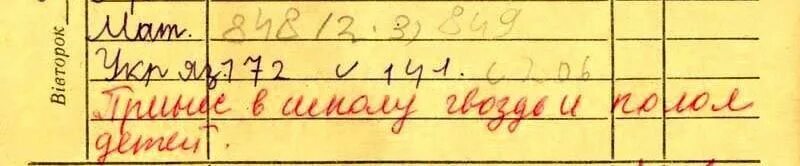 Вівторок
Мат. 848 (2.3) 849
Укр яз. 172 с 141. с 206
Принес в школу гвозди и полол
детей.